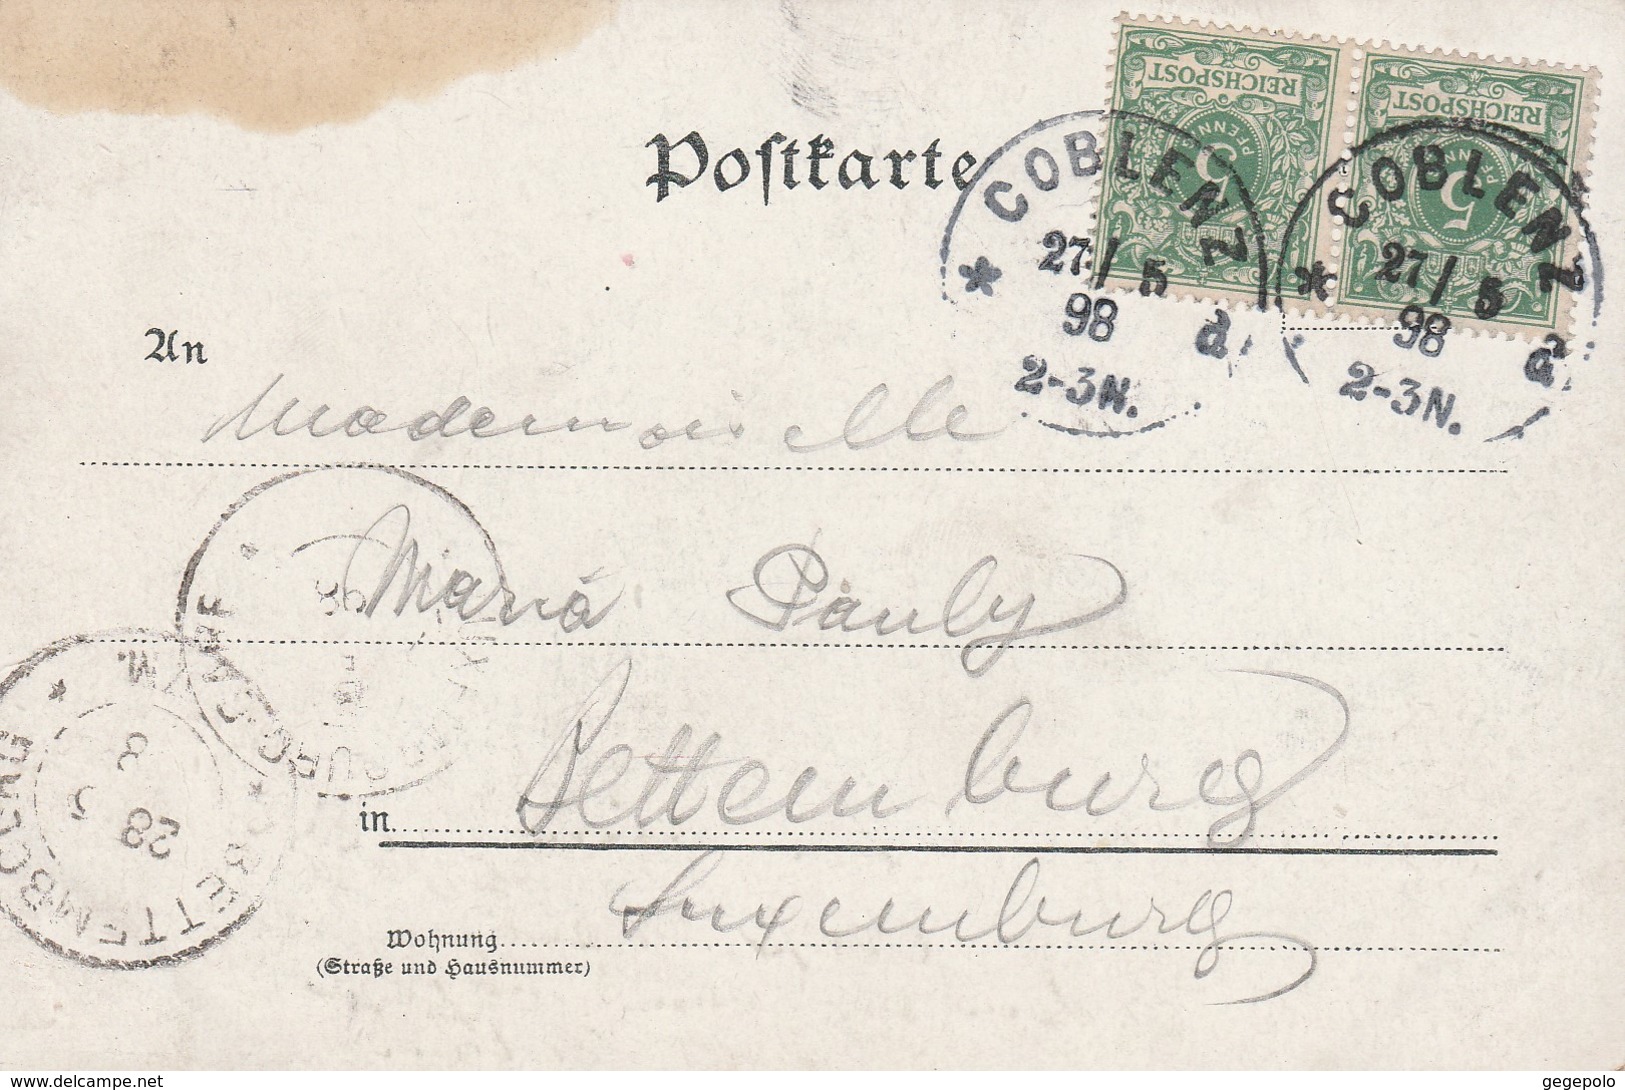 REICHSPOST REICHSPOST
5 PFENNIG 5 PFENN
Postkarte
* COBLENZ
27/5
98
2-3N.
a
* COBLENZ
27/5
98
2-3N.
a
An
Mademoiselle
Maria Pauly
in Bettemburg
Luxemburg
Wohnung
(Straße und Hausnummer)
LUXEMBOURG-GARE
98
BETTEMBOURG
7M.
28 5
8
delcampe.net
gegepolo